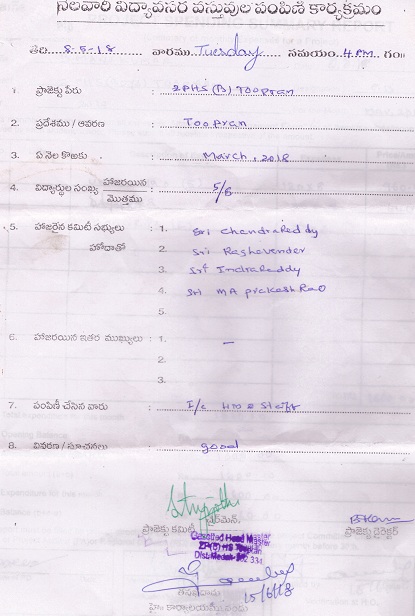 నెలవారి విద్యావసర వస్తువుల పంపిణీ కార్యక్రమం
తేది 8-5-18 వారము Tuesday సమయం. 4 PM. గం॥
1. ప్రాజెక్టు పేరు : ZPHS (B) Toopran
2. ప్రదేశము / ఆవరణ : Toopran
3. ఏ నెల కొఱకు : March, 2018
4. విద్యార్థుల సంఖ్య హాజరయిన / మొత్తము : 5/6
5. హాజరైన కమిటీ సభ్యులు : 1. Sri Chandra Reddy
హోదాతో 2. Sri Raghavender
3. Sri Indra Reddy
4. Sri MA Prakash Rao
5.
6. హాజరయిన ఇతర ముఖ్యులు : 1. —
2.
3.
7. పంపిణీ చేసిన వారు : I/c HM & Staff
8. వివరణ / సూచనలు : good
ఛైర్మెన్,
ప్రాజెక్టు కమిటీ
ప్రాజెక్టు డైరెక్టర్
Gazetted Head Master
ZP(B) HS Toopran
Dist: Medak- 502 334
15/6/18
హైం కార్యాలయమ్నందు